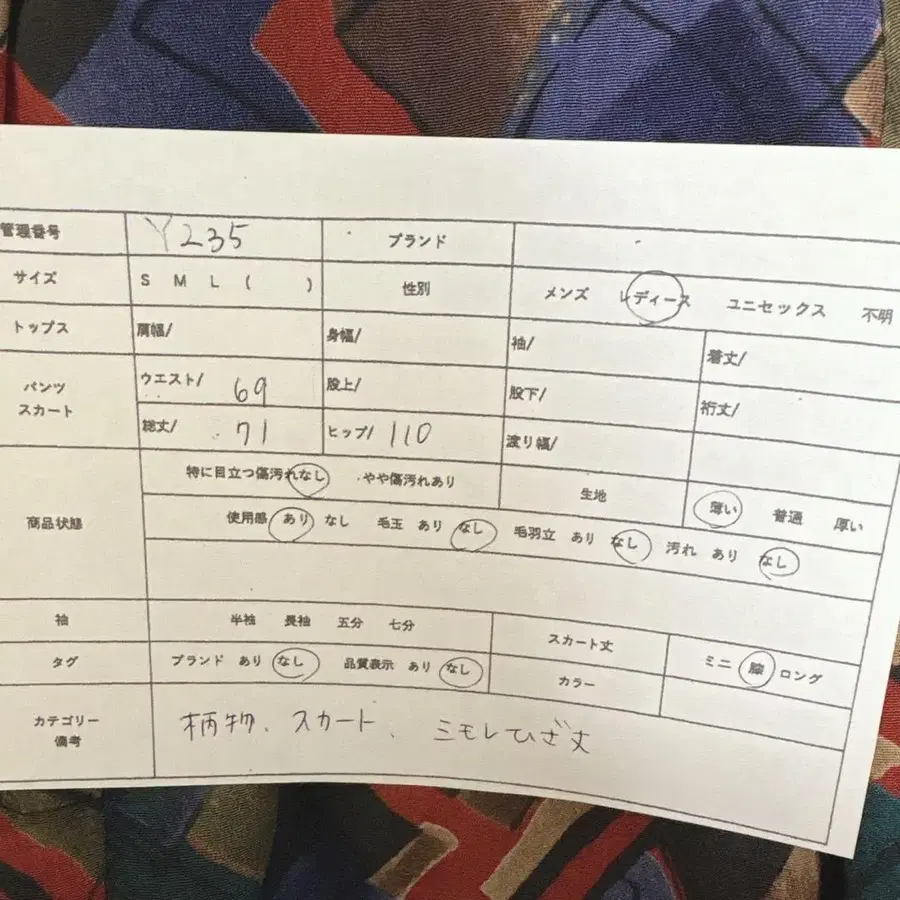 管理番号 Y235 ブランド
サイズ S M L ( ) 性別 メンズ レディース ユニセックス 不明
トップス 肩幅/ 身幅/ 袖/ 着丈/
パンツ スカート ウエスト/ 69 股上/ 股下/ 裄丈/
総丈/ 71 ヒップ/ 110 渡り幅/
商品状態 特に目立つ傷汚れなし やや傷汚れあり 生地 薄い 普通 厚い
使用感 あり なし 毛玉 あり なし 毛羽立 あり なし 汚れ あり なし
袖 半袖 長袖 五分 七分 スカート丈 ミニ 膝 ロング
タグ ブランド あり なし 品質表示 あり なし カラー
カテゴリー 備考 柄物、スカート、ミモレひざ丈